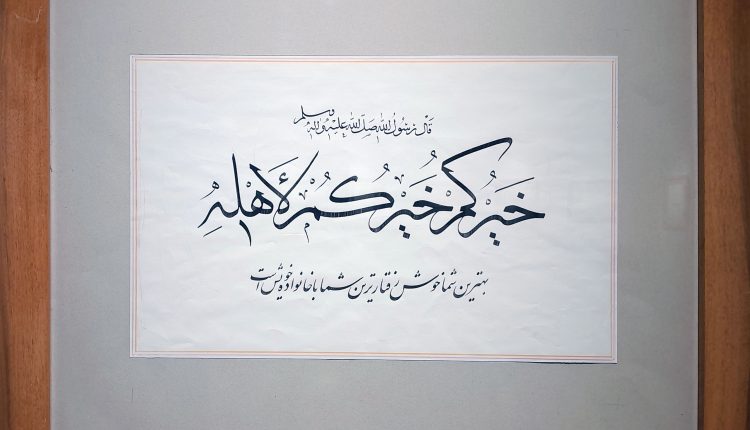 قَالَ رَسُولُ اللهِ صَلَّی اللهُ عَلَیْهِ وَآلِهِ وَسَلَّم
خَیْرُکُمْ خَیْرُکُمْ لِأَهْلِهِ
بهترین شما خوش رفتارترین شما با خانواده خویش است